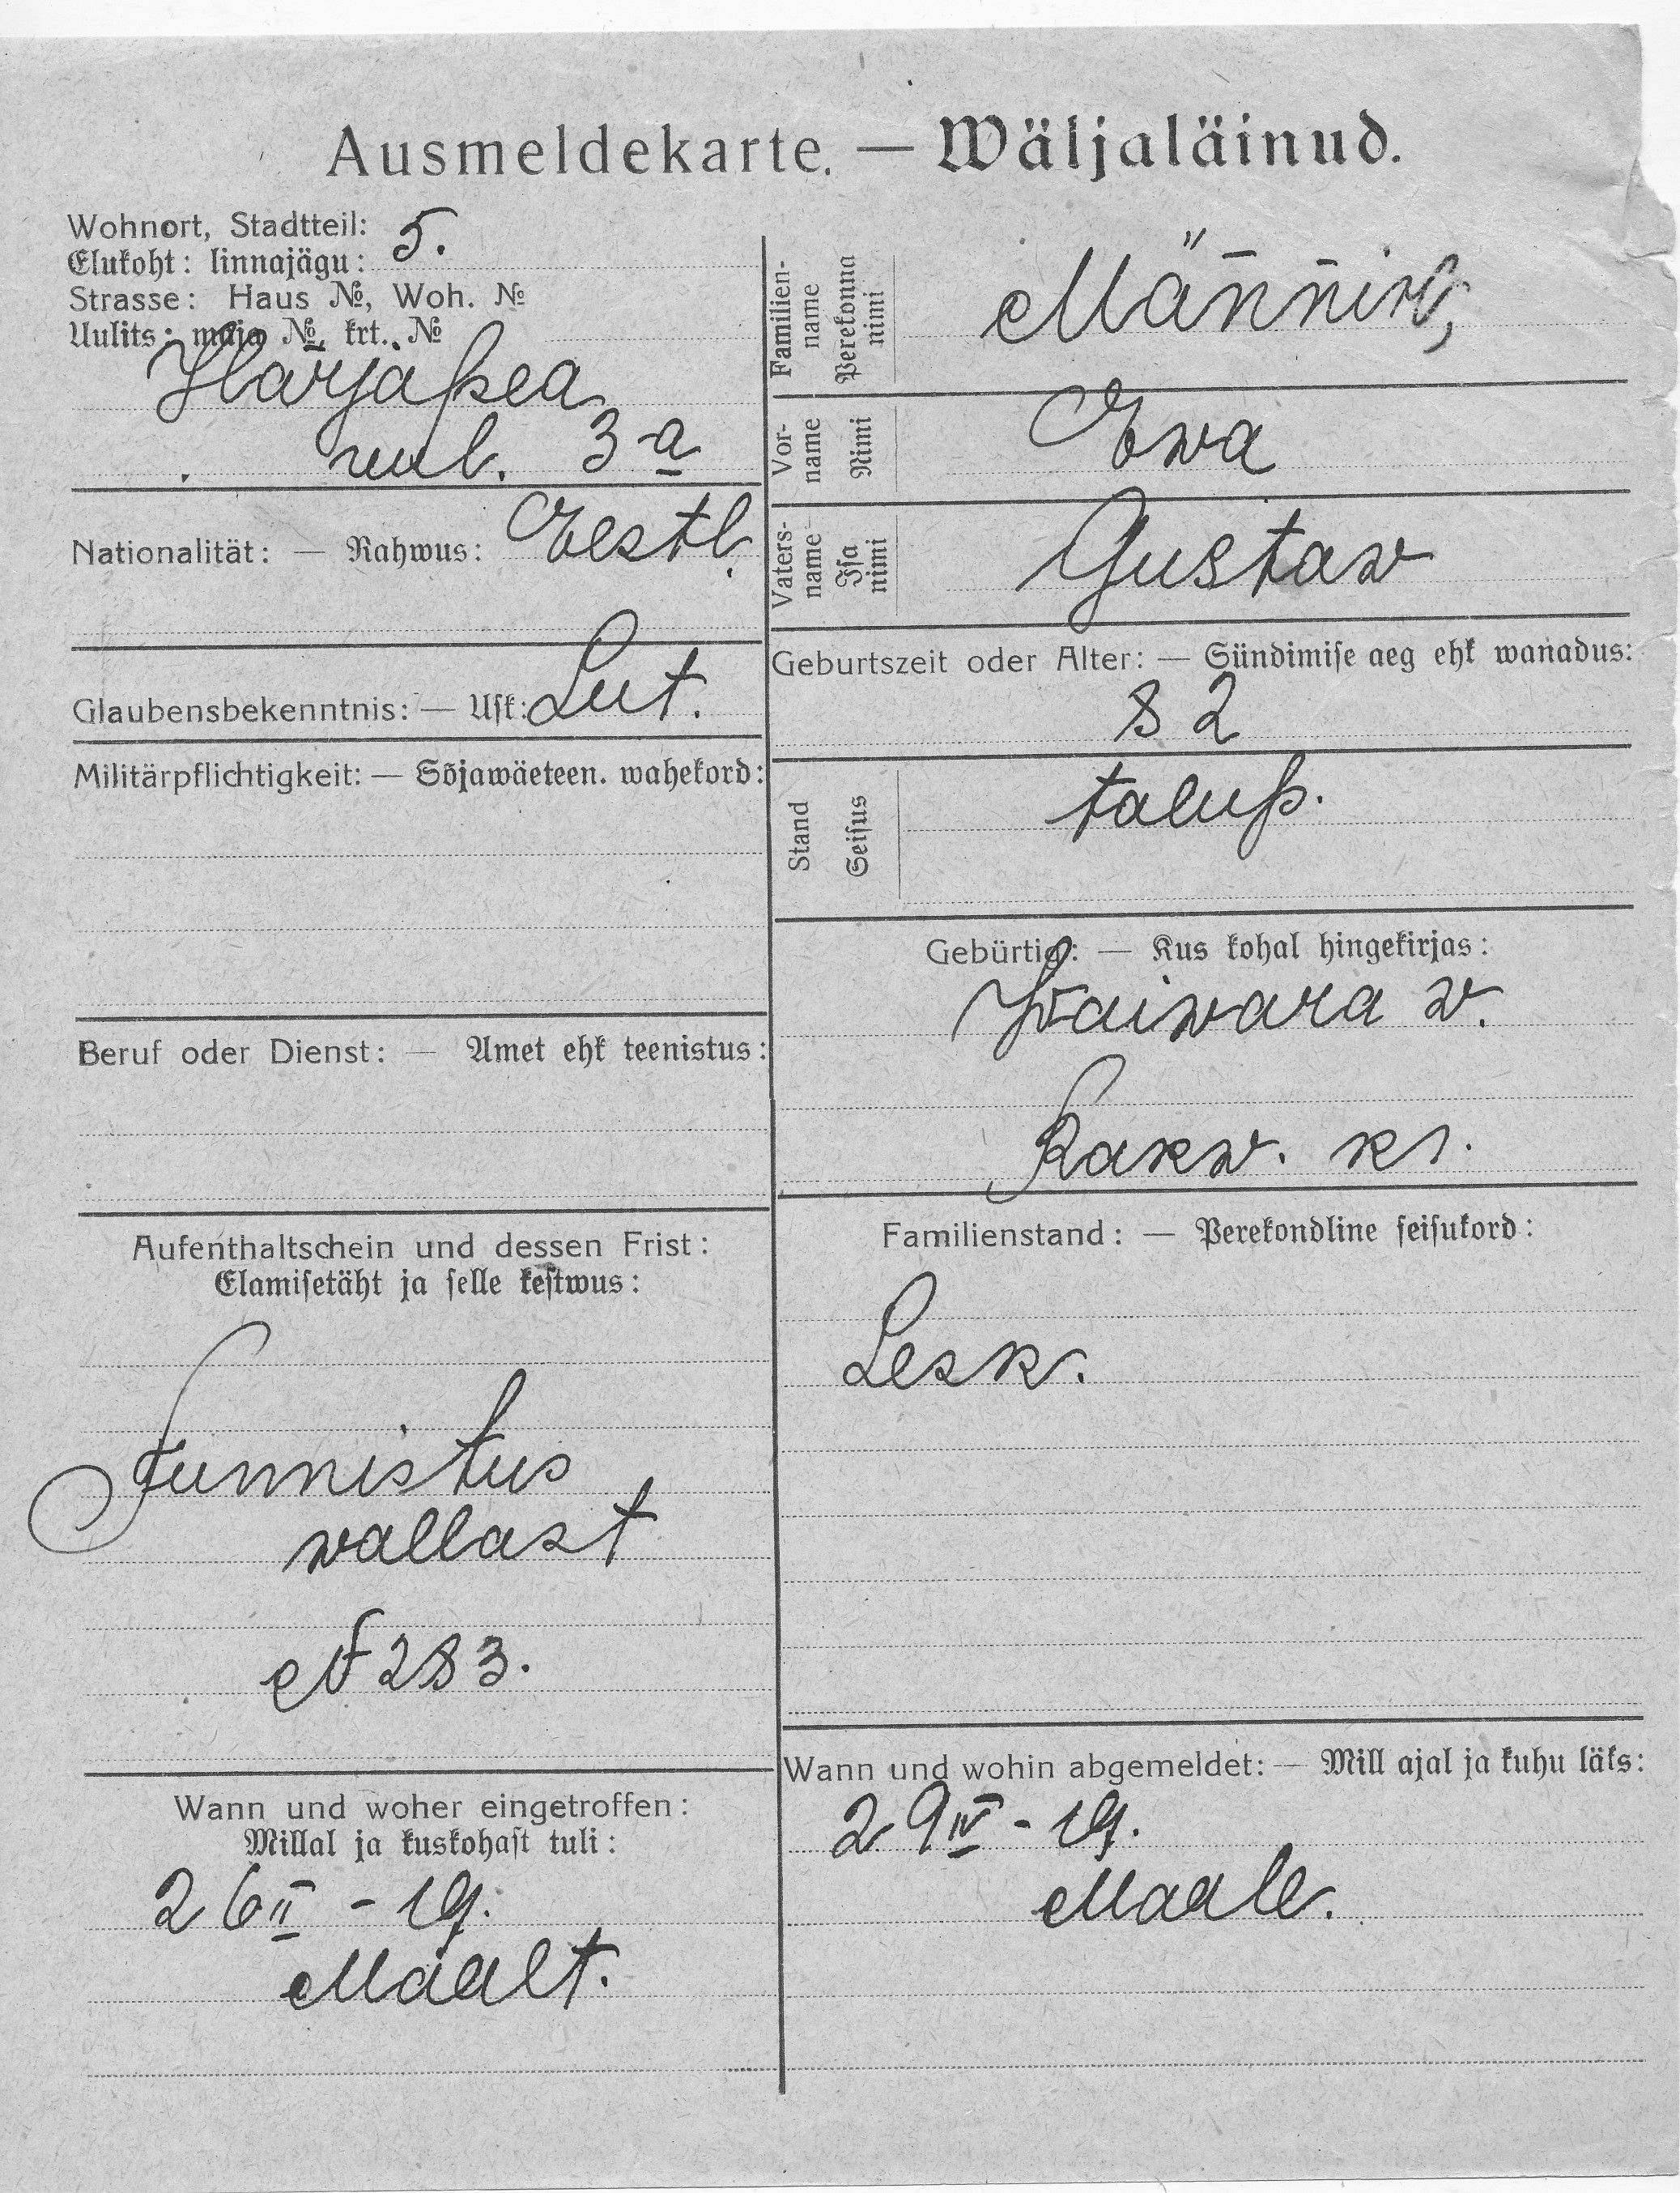 Ausmeldekarte. — Wäljaläinud.
Wohnort, Stadtteil: 5.
Elukoht: linnajägu:
Strasse: Haus №, Woh. №
Uulits: maja №, krt. №
Harjapea
uul. 3-a
Nationalität: — Rahwus: Eestl.
Glaubensbekenntnis: — Usk: Lut.
Militärpflichtigkeit: — Sõjawäeteen. wahekord:
Beruf oder Dienst: — Amet ehk teenistus:
Aufenthaltschein und dessen Frist:
Elamisetäht ja selle kestwus:
Tunnistus
wallast
№ 283.
Wann und woher eingetroffen:
Millal ja kuskohast tuli:
26 II - 19.
Maalt.
Familien-
name
Perekonna
nimi
Männik,
Vor-
name
Nimi
Ewa
Vaters-
name
Isa
nimi
Gustaw
Geburtszeit oder Alter: — Sündimise aeg ehk wanadus:
82
Stand
Seisus
talup.
Gebürtig: — Kus kohal hingekirjas:
Waiwara w.
Rakw. kr.
Familienstand: — Perekondline seisukord:
Lesk.
Wann und wohin abgemeldet: — Mill ajal ja kuhu läks:
29 IV - 19.
Maale.